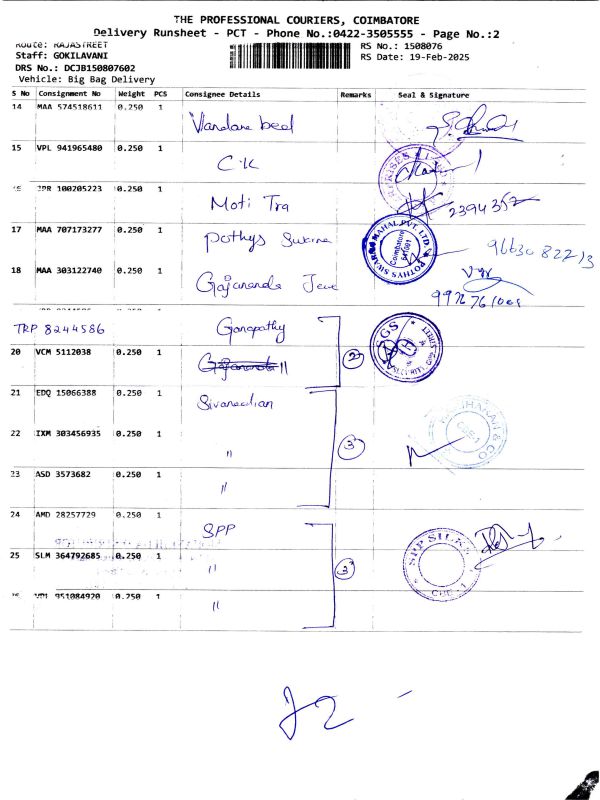 THE PROFESSIONAL COURIERS, COIMBATORE
Delivery Runsheet - PCT - Phone No.:0422-3505555 - Page No.:2
Route: RAJASTREET
RS No.: 1508076
Staff: GOKILAVANI
RS Date: 19-Feb-2025
DRS No.: DCJB150807602
Vehicle: Big Bag Delivery
S No Consignment No Weight PCS Consignee Details Remarks Seal & Signature
14 MAA 574518611 0.250 1
15 VPL 941965480 0.250 1 C.K
100205223 0.250 1 Moti Tra 2394352
17 MAA 707173277 0.250 1 Pothys
POTHYS SWARNA MAHAL PVT. LTD.
Coimbatore
641001
9663082213
18 MAA 303122740 0.250 1 Gajananda
TRP 8244586 Ganapathy
SGS
20 VCM 5112038 0.250 1 Gajananda 〃 2
21 EDQ 15066388 0.250 1
22 IXM 303456935 0.250 1 〃 3
& CO
CBE-1
23 ASD 3573682 0.250 1 〃
24 AMD 28257729 0.250 1 SPP
25 SLM 364792685 0.250 1 〃 3
SPP SILKS
CBE - 1
951084920 0.250 1 〃